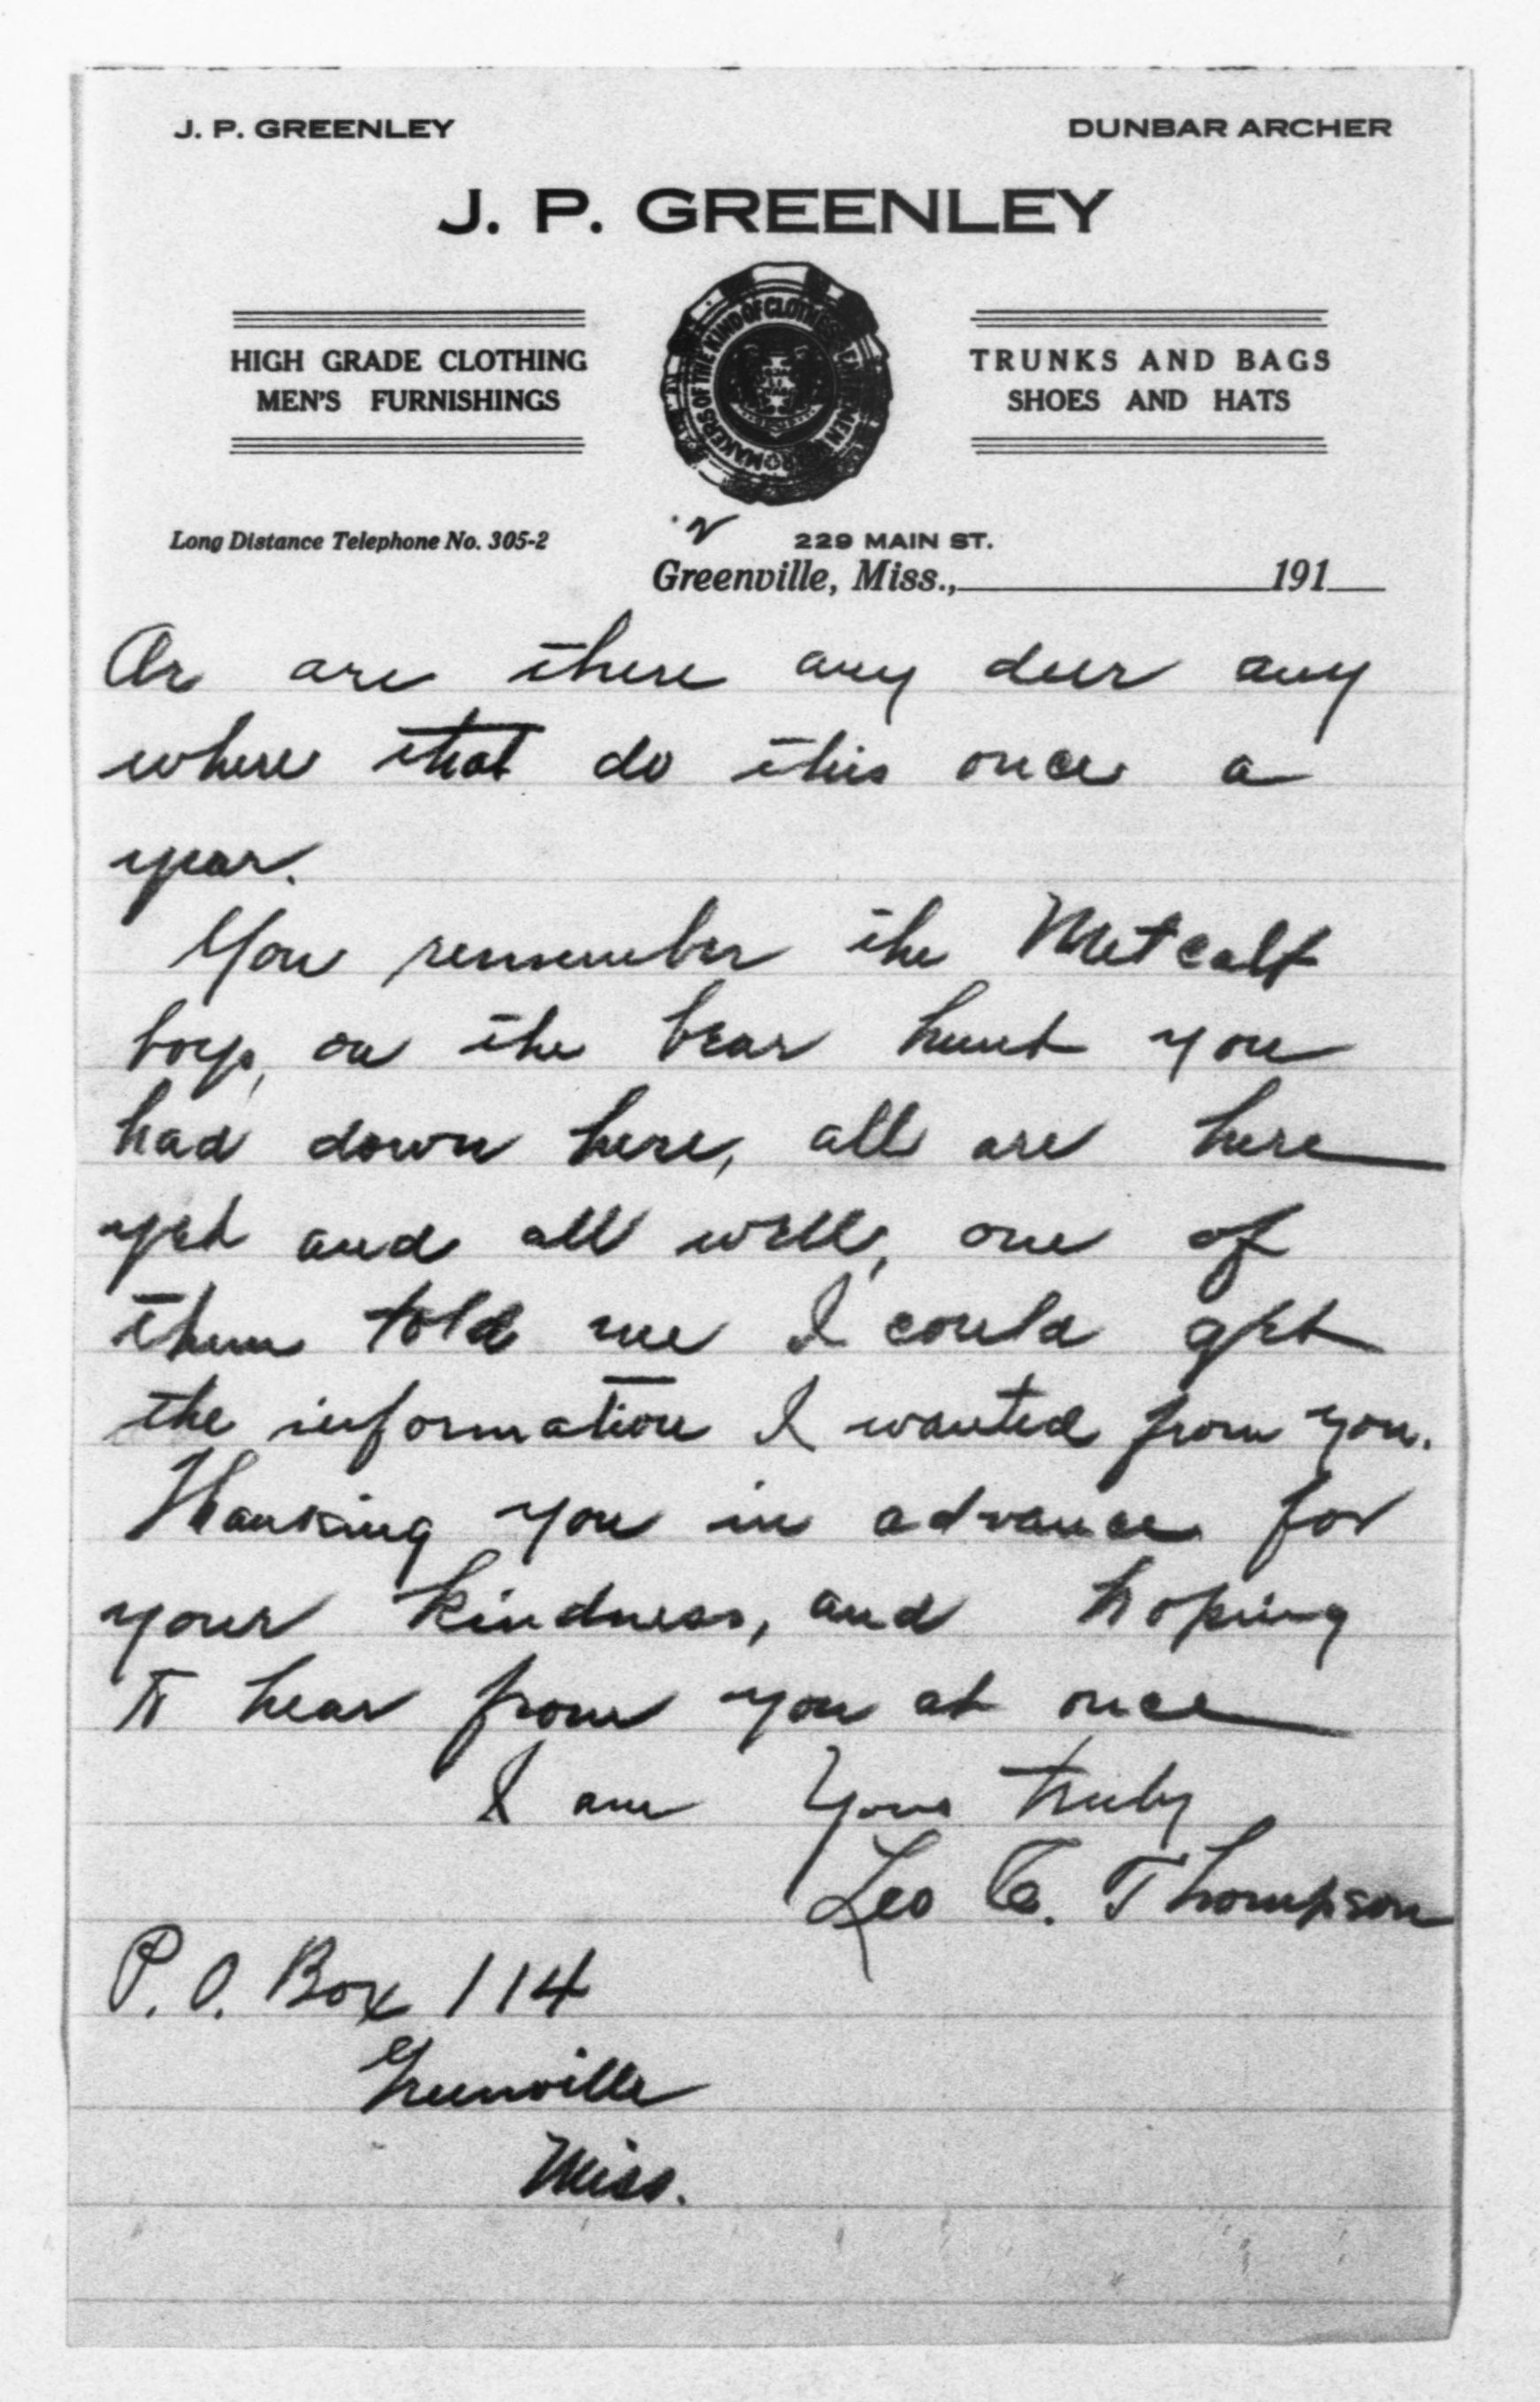 J. P. GREENLEY DUNBAR ARCHER
J. P. GREENLEY
HIGH GRADE CLOTHING
MEN'S FURNISHINGS
MAKERS OF THE KIND OF CLOTHES GENTLEMEN
TRUNKS AND BAGS
SHOES AND HATS
Long Distance Telephone No. 305-2
229 MAIN ST.
Greenville, Miss., 191
Or are there any deer any
where that do this once a
year.
You remember the Metcalf
boys, on the bear hunt you
had down here, all are here
yet and all well, one of
them told me I could get
the information I wanted from you.
Thanking you in advance for
your kindness, and hoping
to hear from you at once
I am Yours truly
Leo C. Thompson
P.O. Box 114
Greenville
Miss.